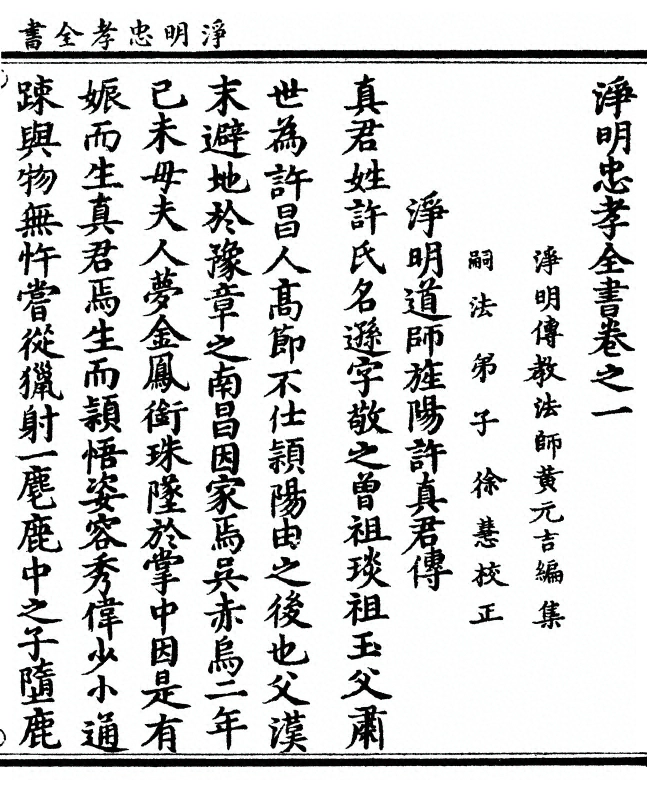 淨明忠孝全書
淨明忠孝全書卷之一
淨明傳教法師黃元吉編集
嗣法弟子徐慧校正
淨明道師旌陽許真君傳
真君姓許氏名遜字敬之曾祖琰祖玉父肅
世為許昌人高節不仕頴陽由之後也父漢
末避地於豫章之南昌因家焉吳赤烏二年
己未母夫人夢金鳳銜珠墜於掌中因是有
娠而生真君焉生而頴悟姿容秀偉少小通
踈與物無忤嘗從獵射一麀鹿中之子墮鹿